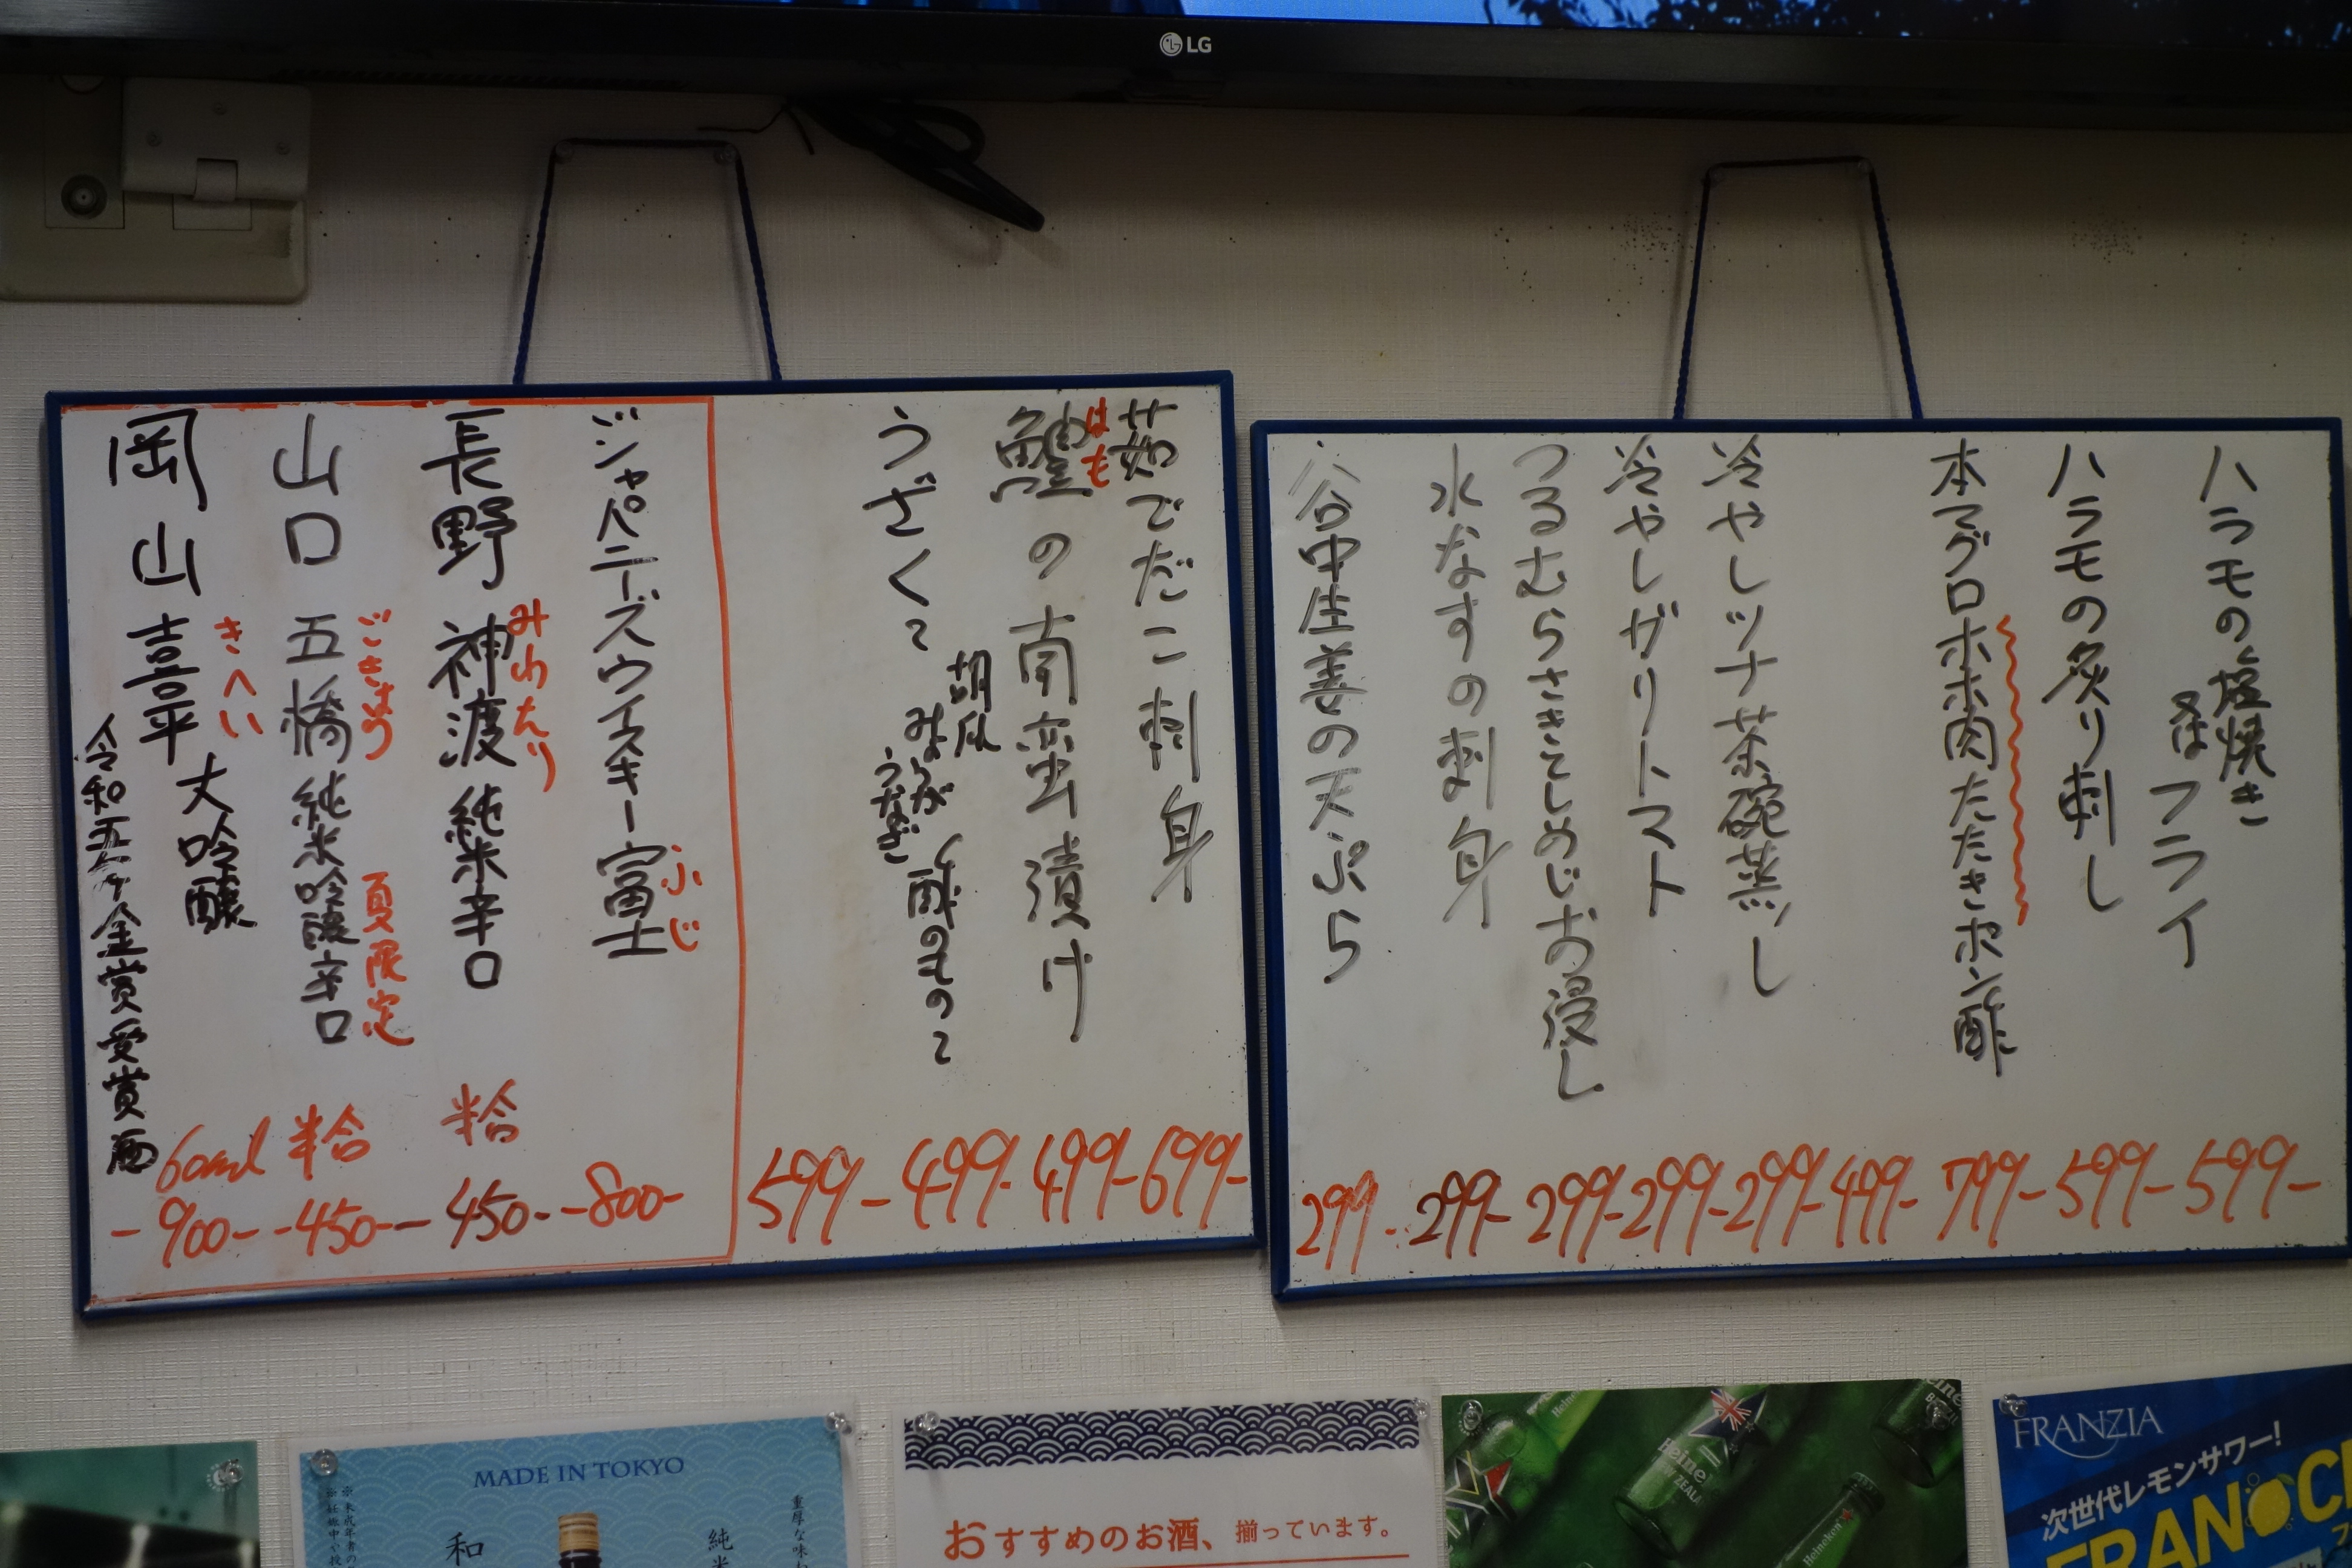 LG
ハラモの塩焼き
又はフライ
599-
ハラモの炙り刺し
599-
本マグロホホ肉たたきポン酢
799-
499-
冷やしツナ茶碗蒸し
299-
冷やしガリトマト
299-
つるむらさきとしめじお浸し
299-
水なすの刺身
299-
谷中生姜の天ぷら
299-
茹でだこ刺身
699-
はも
鱧の南蛮漬け
499-
うざく〜胡瓜
みょうが
うなぎ
酢のもの〜
499-
599-
ジャパニーズウイスキー富士
ふじ
-800-
長野 神渡 純米辛口
みわたり
半合
450-
山口 五橋 純米吟醸辛口
ごきょう
夏限定
半合
-450-
岡山 喜平 大吟醸
きへい
60ml
-900-
令和五年金賞受賞酒
MADE IN TOKYO
和
純米
重厚な味わ
おすすめのお酒、揃っています。
Heineken
FRANZIA
次世代レモンサワー!